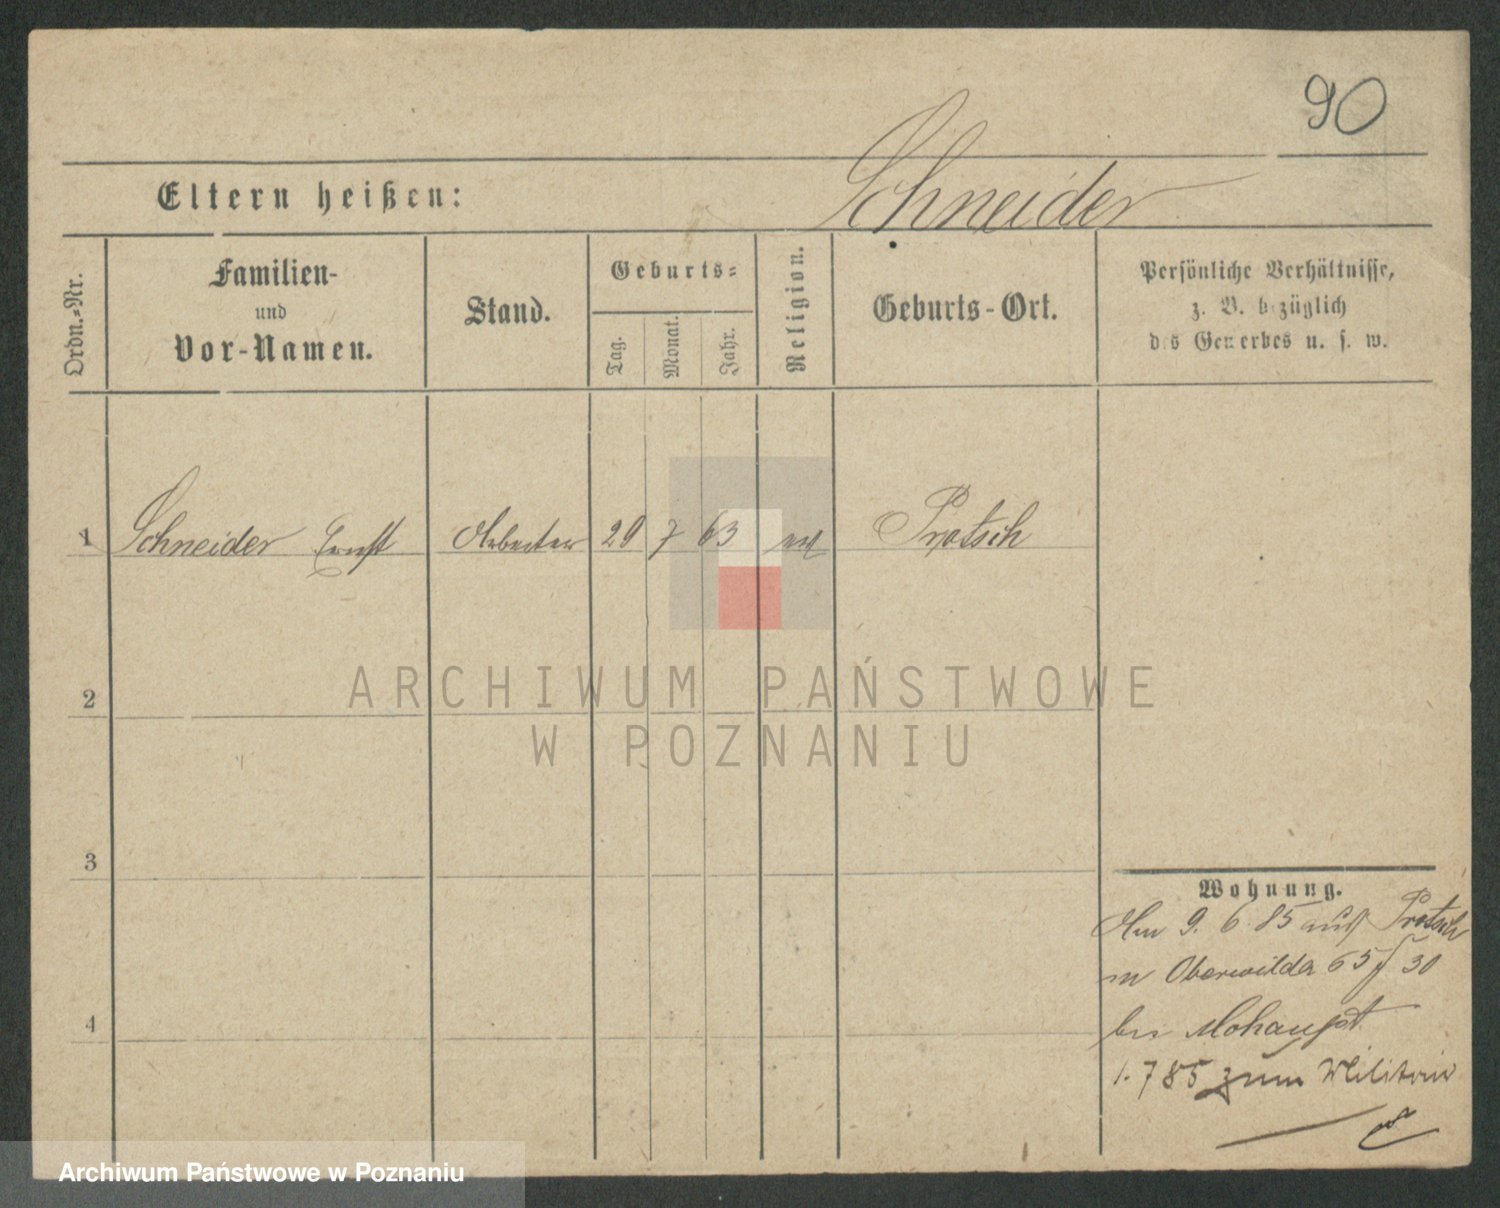 90
Eltern heißen: Schneider
Ordn.-Nr.
Familien-
und
Vor-Namen.
Stand.
Geburts-
Tag.
Monat.
Jahr.
Religion.
Geburts-Ort.
Persönliche Verhältnisse,
z. B. bezüglich
des Gewerbes u. s. w.
1 Schneider Ernst Arbeiter 29 7 63 Protsch
2
3
4
Wohnung.
Am 9. 6. 85 aus Protsch
in Oberwilda 65/30
bei Mohaupt
1. 7 85 zum Militair
ARCHIWUM PAŃSTWOWE
W POZNANIU
Archiwum Państwowe w Poznaniu